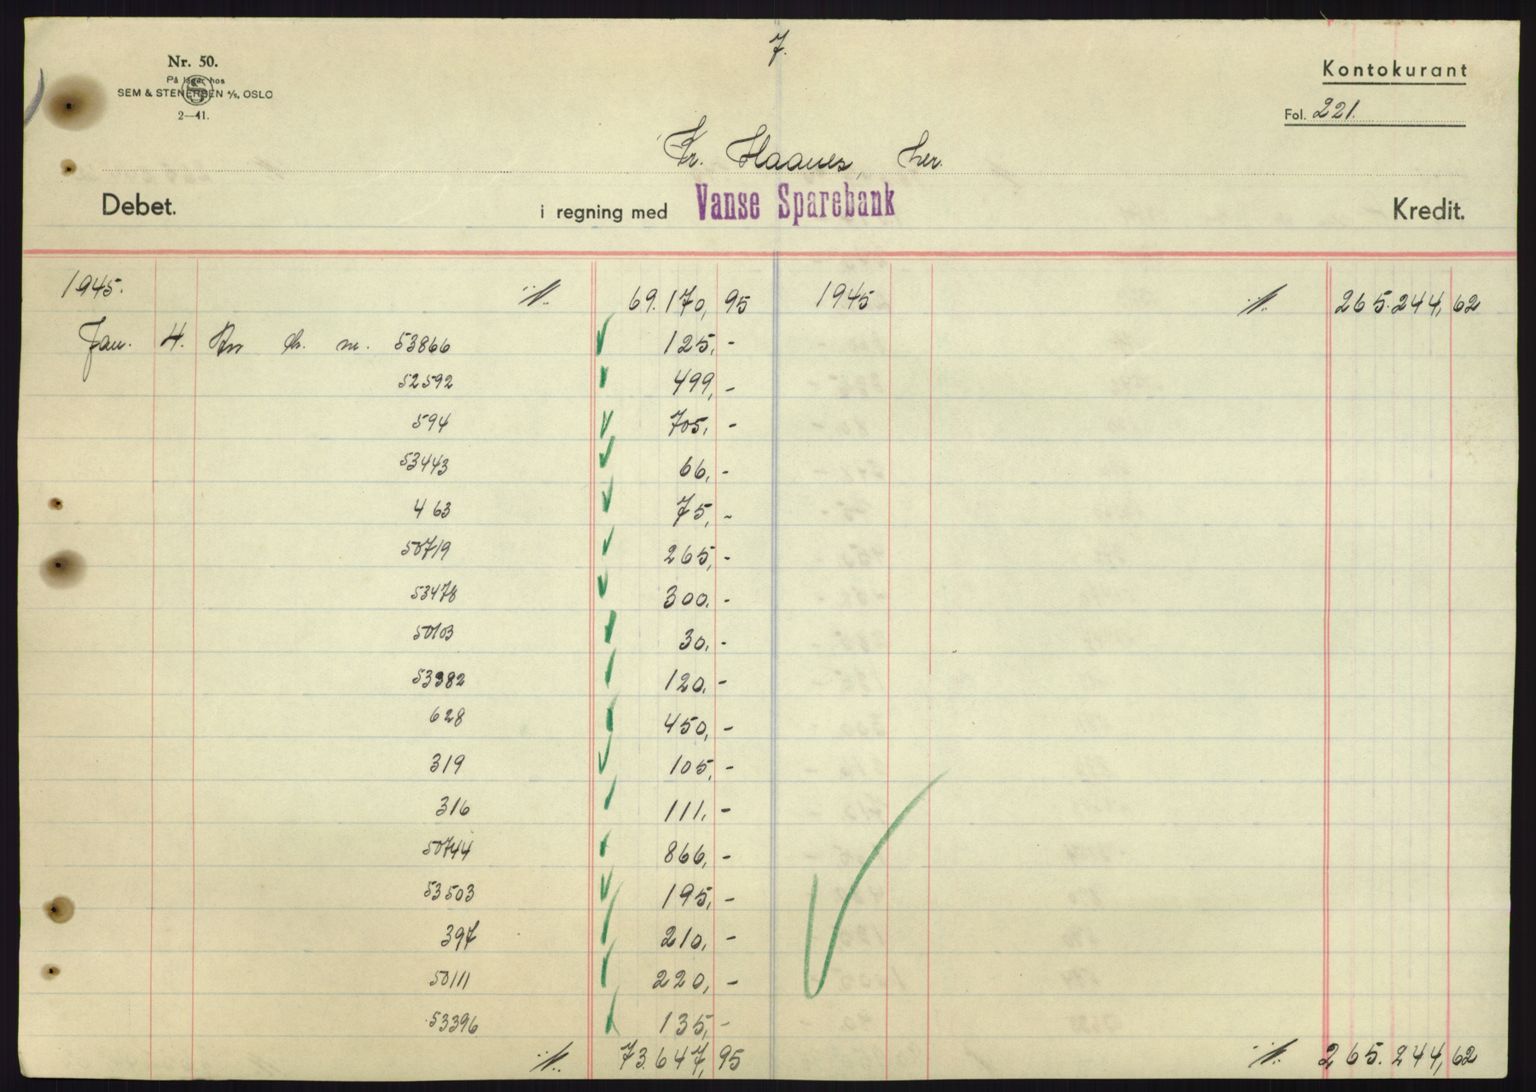 7.
Nr. 50.
På lager hos
SEM & STENERSEN A/S, OSLO
2—41.
Kontokurant
Fol. 221.
Kr. Haanes, her.
Debet. i regning med Vanse Sparebank Kredit.
1945. ·/. 69.170,95 1945 ·/. 265.244,62
Jan. 4. nr. 53866 125,-
52592 499,-
594 705,-
53443 66,-
463 75,-
50719 265,-
53478 300,-
50103 30,-
53382 120,-
628 450,-
319 105,-
316 111,-
50744 866,-
53503 195,-
397 210,-
50111 220,-
53396 135,-
·/. 73.647,95 ·/. 265.244,62